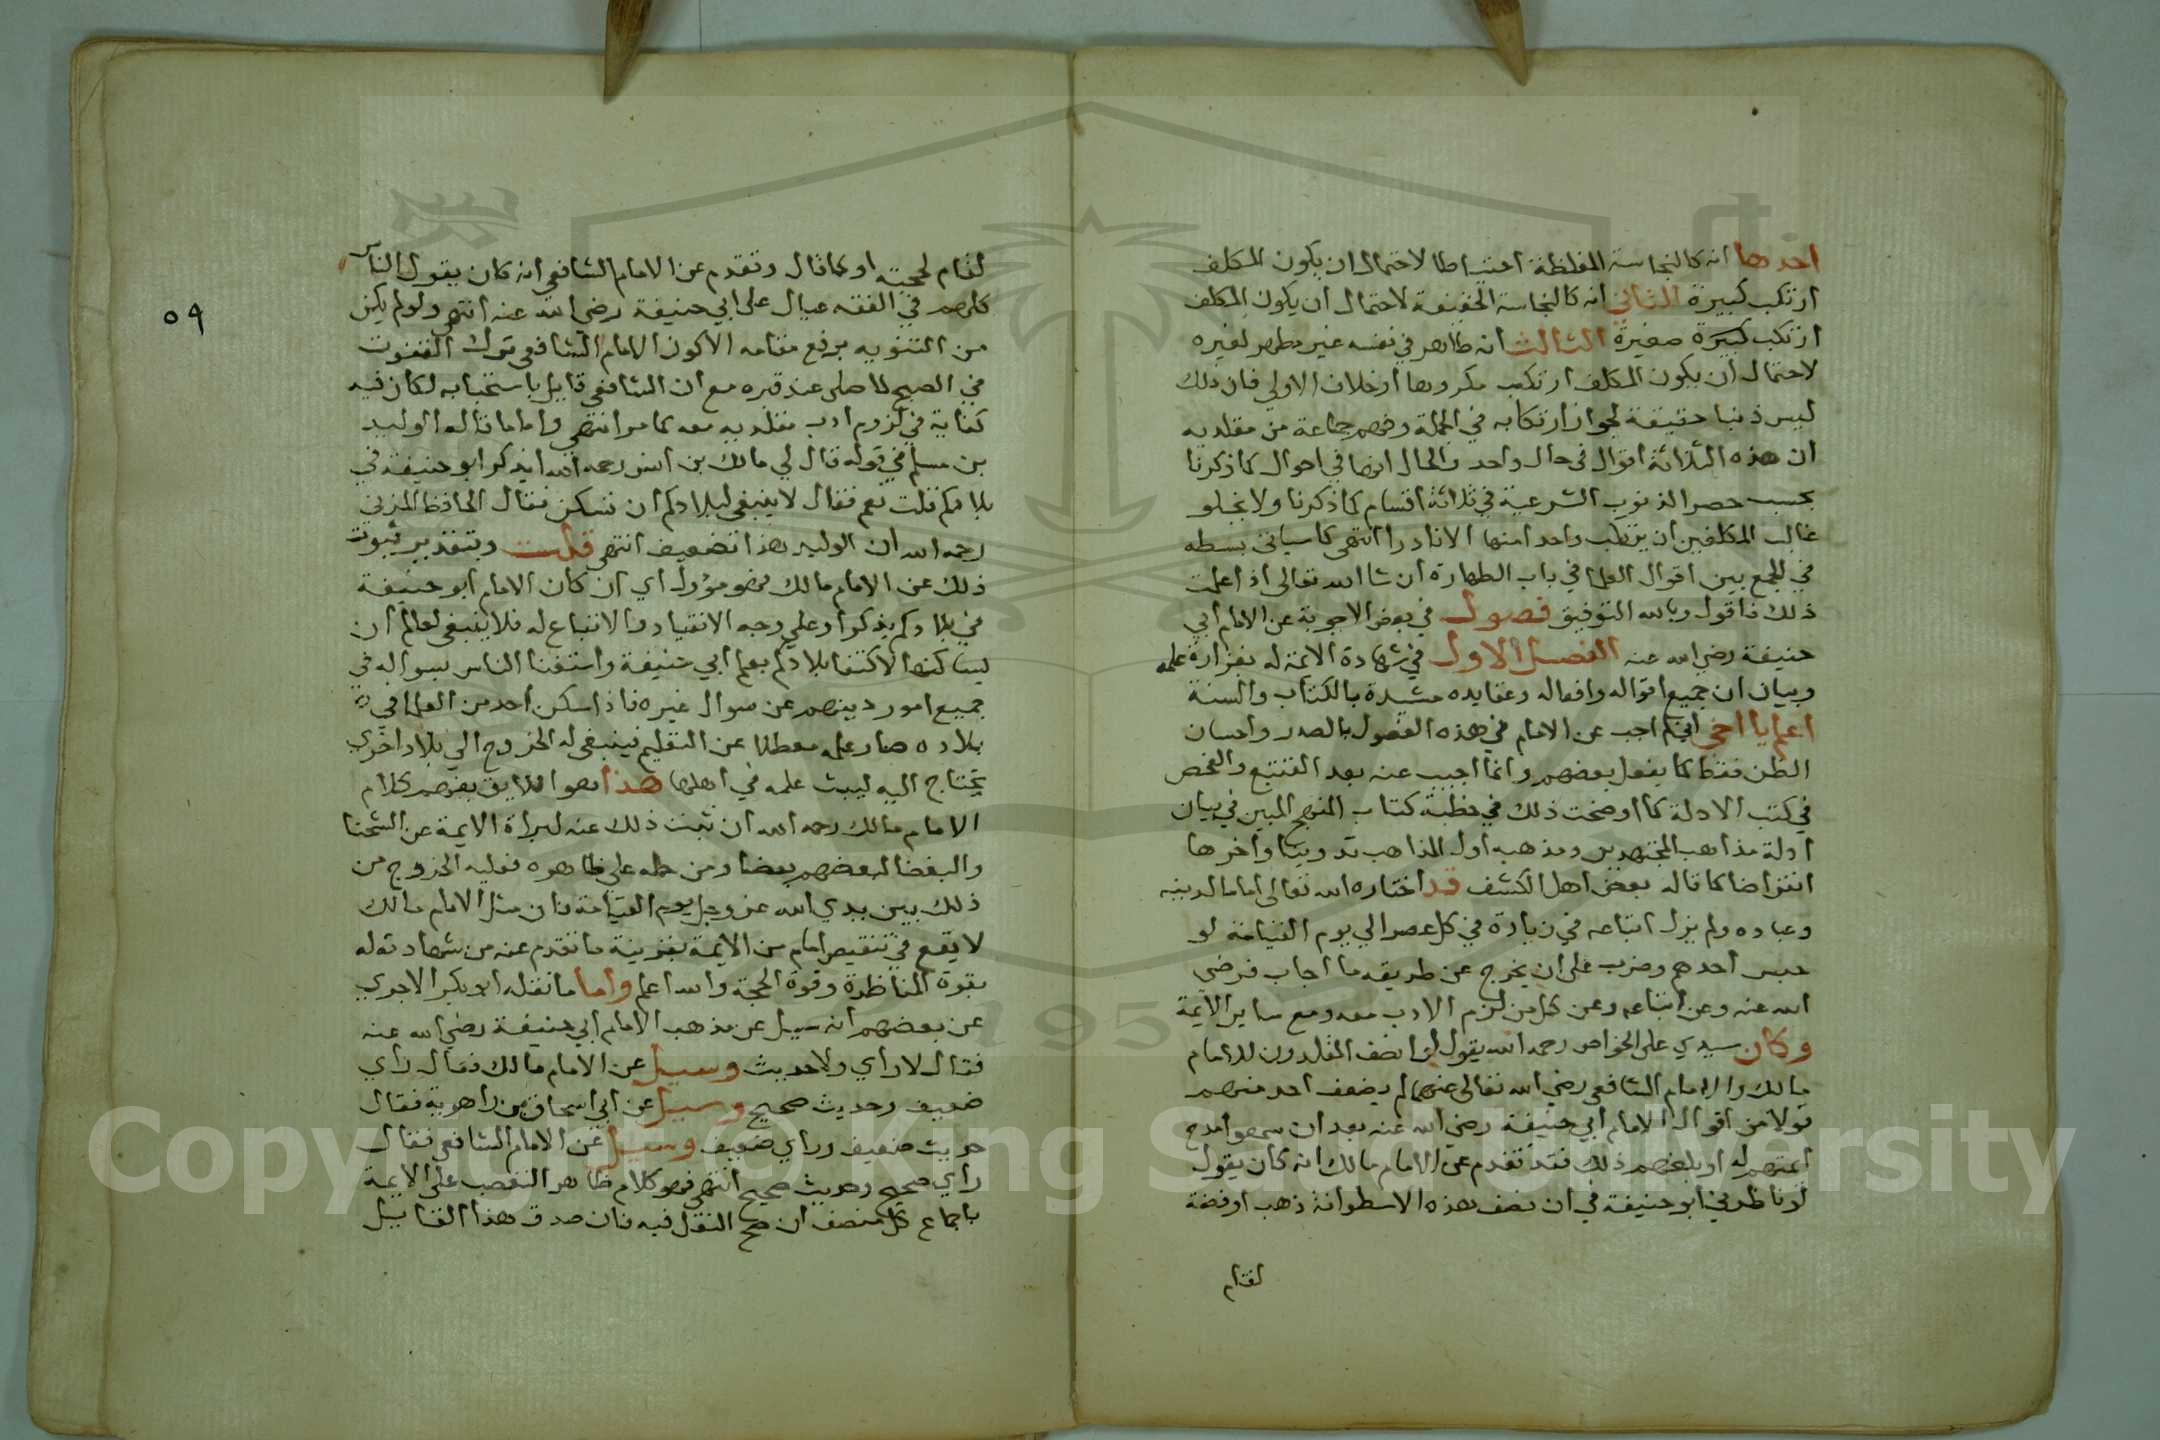 احدها انه كالنجاسة المغلظة احتياطا لاحتمال ان يكون المكلف
ارتكب كبيرة الثاني انه كالنجاسة الخفيفة لاحتمال ان يكون المكلف
ارتكب كبيرة صغيرة الثالث انه طاهر في نفسه غير مطهر لغيره
لاحتمال ان يكون المكلف ارتكب مكروها او خلاف الاولي فان ذلك
ليس ذنبا حقيقة لجواز ارتكابه في الجملة وفهم جماعة من مقلديه
ان هذه الثلاثة اقوال في حال واحد والحال انها في احوال كما ذكرنا
بحسب حصر الذنوب الشرعية في ثلاثة اقسام كما ذكرنا ولا يخلو
غالب المكلفين ان يرتكب واحدا منها الا نادرا انتهى كما سياتي بسطه
في الجمع بين اقوال العلما في باب الطهارة ان شا الله تعالى اذا علمت
ذلك فاقول وبالله التوفيق فصول في بعض الاجوبة عن الامام ابي
حنيفة رضي الله عنه الفصل الاول في شهادة الايمة له بغزارة علمه
وبيان ان جميع اقواله وافعاله وعقايده مشيدة بالكتاب والسنة
اعلم يا اخي اني لم اجب عن الامام في هذه الفصول بالصدر واحسان
الظن فقط كما يفعل بعضهم وانما اجيب عنه بعد التتبع والفحص
في كتب الادلة كما اوضحت ذلك في خطبة كتاب المنهج المبين في بيان
ادلة مذاهب المجتهدين ومذهبه اول المذاهب تدوينا واخرها
انقراضا كما قاله بعض اهل الكشف قد اختاره الله تعالى اماما لدينه
وعباده ولم يزل اتباعه في زيادة في كل عصر الي يوم القيامة لو
حبس احدهم وضرب على ان يخرج عن طريقه ما اجاب فرضي
الله عنه وعن اتباعه وعن كل من لزم الادب معه ومع ساير الايمة
وكان سيدي على الخواص رحمه الله يقول لو انصف المقلدون للامام
مالك والامام الشافعي رضي الله تعالى عنهما لم يضعف احد منهم
قولا من اقوال الامام ابي حنيفة رضي الله عنه بعد ان سمعوا مدح
ايمتهم له او بلغهم ذلك فقد تقدم عن الامام مالك انه كان يقول
لو ناظرني ابو حنيفة في ان نصف هذه الاسطوانة ذهب او فضة
لقام
٥٩
لقام لحجته او كما قال وتقدم عن الامام الشافعي انه كان يقول الناس
كلهم في الفقه عيال على ابي حنيفة رضي الله عنه انتهى ولو لم يكن
من التنويه برفع مقامه الا كون الامام الشافعي ترك القنوت
في الصبح لما صلى عند قبره مع ان الشافعي قايل باستحبابه لكان فيه
كفاية في لزوم ادب مقلديه معه كما مر انتهى واما ما قاله الوليد
بن مسلم في قوله قال لي مالك بن انس رحمه الله ايذكر ابو حنيفة في
بلادكم قلت نعم فقال لا ينبغي لبلادكم ان تسكن فقال الحافظ المزني
رحمه الله ان الوليد هذا ضعيف انتهى قلت وبتقدير ثبوت
ذلك عن الامام مالك فهو مؤول اي ان كان الامام ابو حنيفة
في بلادكم يذكر اوعلي وجه الانقياد والاتباع له فلا ينبغي لعالم ان
يسكنها لاكتفا بلادكم بعلم ابي حنيفة واستغنا الناس بسواله في
جميع امور دينهم عن سوال غيره فاذا سكن احد من العلما في
بلاده صار علمه معطلا عن التعليم فينبغي له الخروج الي بلاد اخري
تحتاج اليه ليبث علمه في اهلها هذا هو اللايق بفهم كلام
الامام مالك رحمه الله ان ثبت ذلك عنه لبراة الايمة عن الشحنا
والبغضا لبعضهم بعضا ومن حمله على ظاهره فعليه الخروج من
ذلك بين يدي الله عز وجل يوم القيامة فان مثل الامام مالك
لا يقع في تنقيص امام من الايمة بقرينة ما تقدم عنه من شهادته له
بقوة المناظرة وقوة الحجة والله اعلم واما ما نقله ابو بكر الاجري
عن بعضهم انه سيل عن مذهب الامام ابي حنيفة رضي الله عنه
فقال لا راي ولا حديث وسيل عن الامام مالك فقال راي
ضعيف وحديث صحيح وسيل عن ابي اسحاق بن راهوية فقال
حديث ضعيف وراي ضعيف وسيل عن الامام الشافعي فقال
راي صحيح وحديث صحيح انتهى فهو كلام ظاهر التعصب على الايمة
باجماع كل منصف ان صح النقل فيه فان صدق هذا القايل
Copyright © King Saud University
195